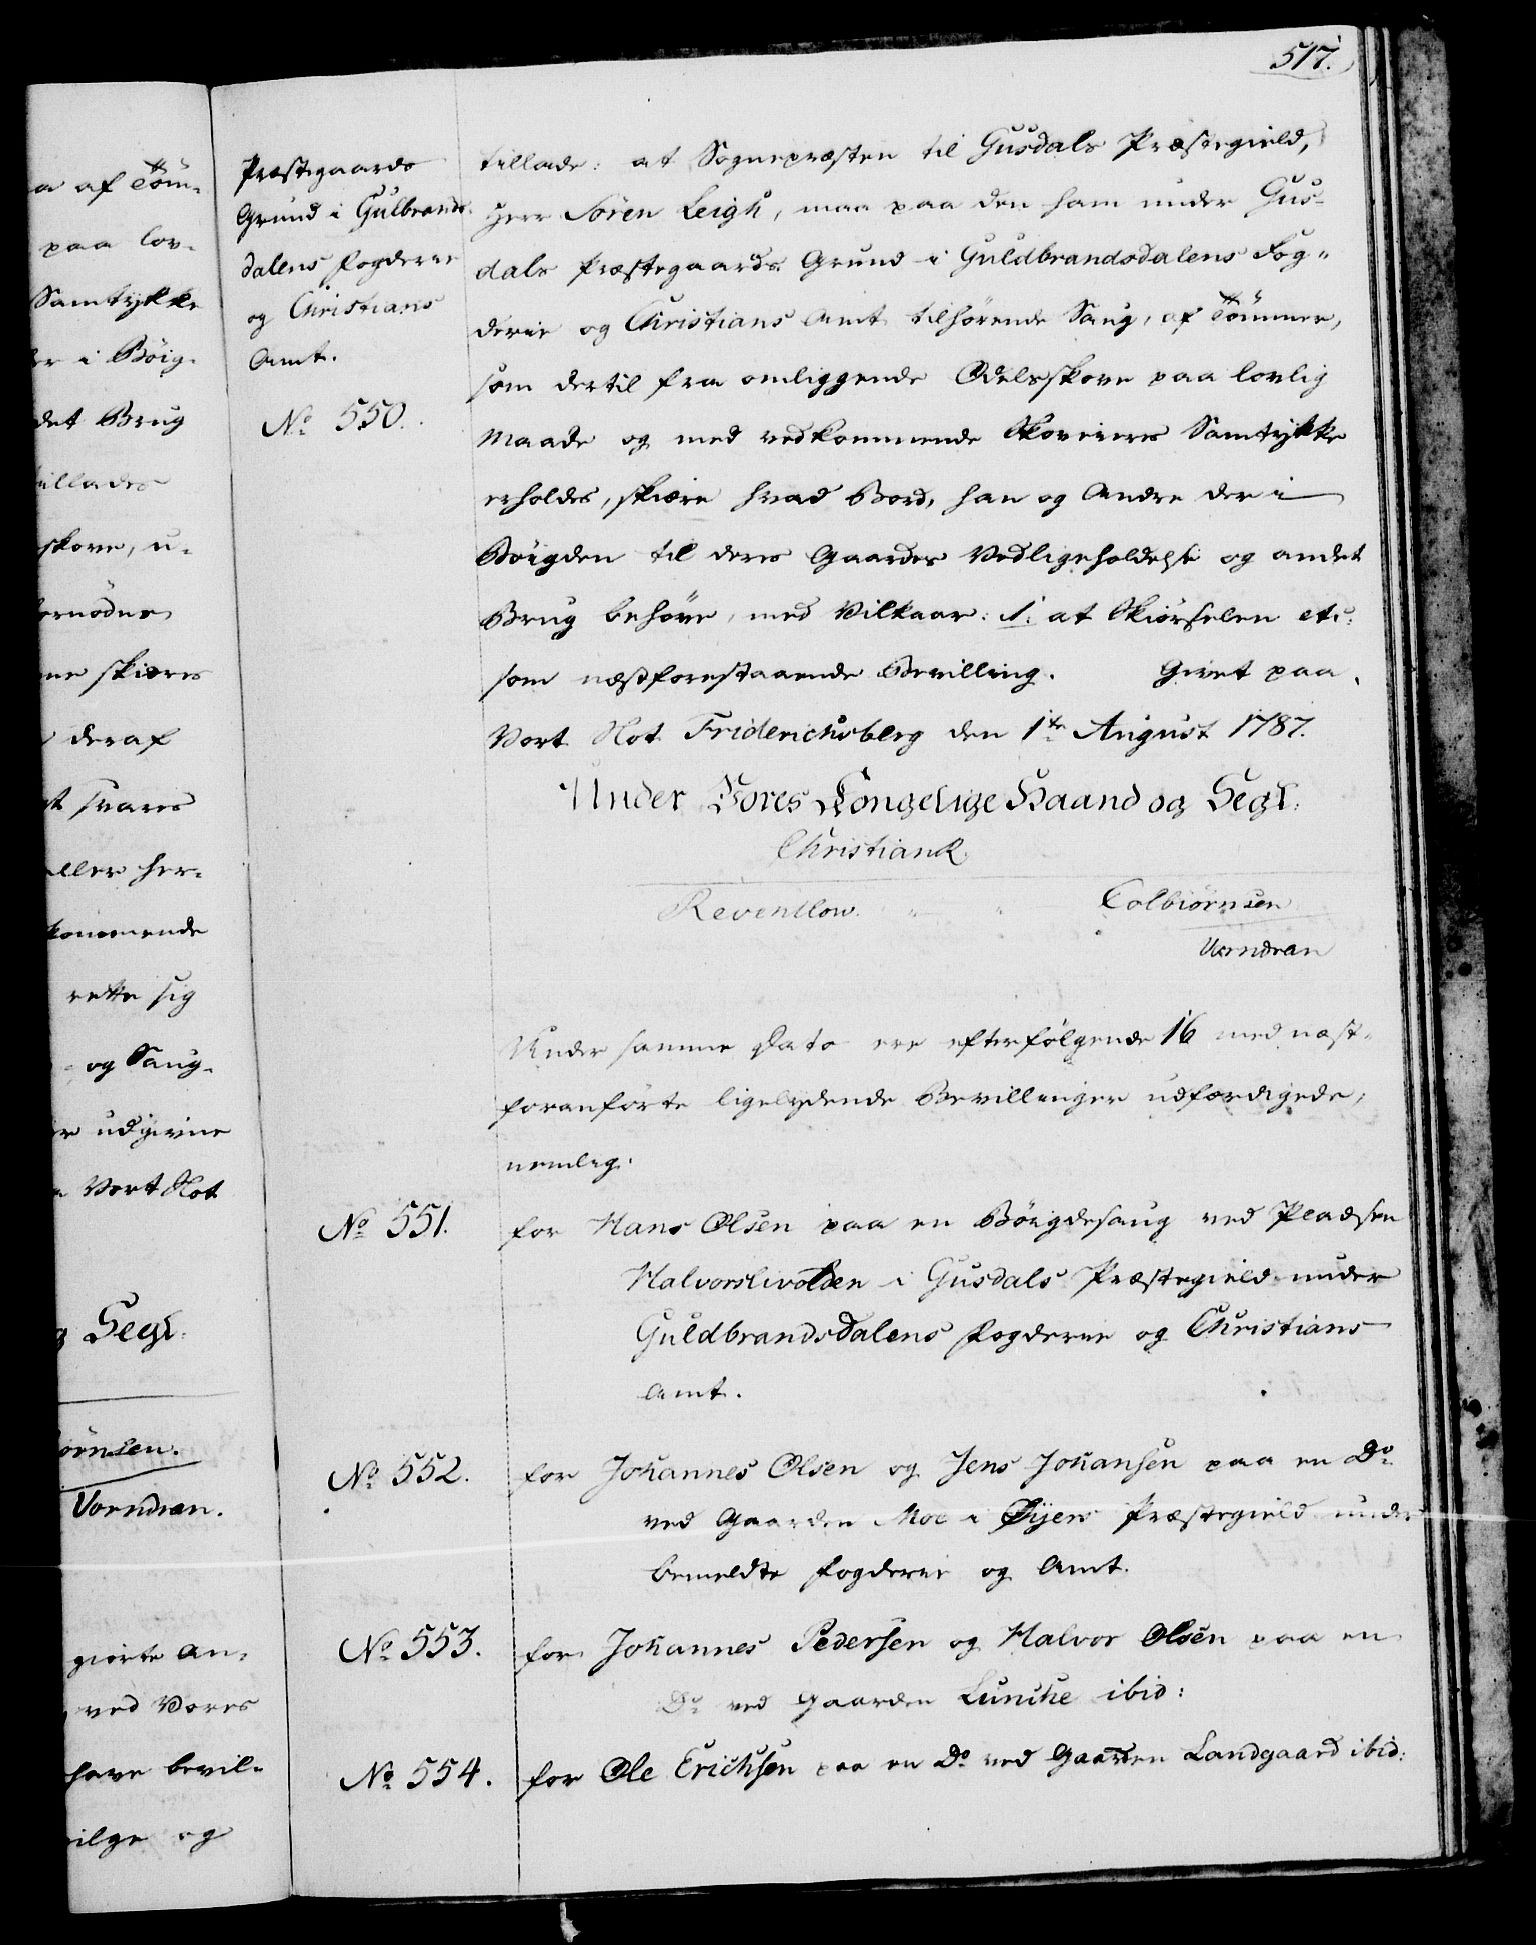 517.
a af Töm-
paa lov-
Samtykke
er i Böig-
det Brug
tillades
skove, u-
fornödne
ne skiæres
deraf
st svares
eller her-
kommende
rette sig
og Saug-
er udgivne
Vort Slot
g Segl.
örnsen.
Vorndran.
giorte An-
ved Vores
have bevil-
vilge og
Præstegaards
Grund i Gulbrands-
dalens Fogderie
og Christians
Amt.
No 550.
tillade: at Sognepræsten til Gusdals Præstegield,
Herr Sören Leigh, maa paa den ham under Gus-
dals Præstegaards Grund i Guldbrandsdalens Fog-
derie og Christians Amt tilhörende Saug, af Tömmer,
som dertil fra omliggende Odelsskove paa lovlig
Maade og med vedkommende Skoveieres Samtykke
erholdes, skiære hvad Bord, han og Andre der i
Böigden til deres Gaardes Vedligeholdelse og andet
Brug behöve, med Vilkaar: 1. at Skiörselen etc:
som næstforestaaende Bevilling. Givet paa
Vort Slot Friderichsberg den 1te August 1787.
Under Vores Kongelige Haand og Segl.
Christian R.
Reventlow. Colbiörnsen
Vorndran
Under samme Dato ere efterfölgende 16 med næst-
foranförte ligelydende Bevillinger udfærdigede,
nemlig:
No 551. for Hans Olsen paa en Böigdesaug ved Pladsen
Halvorslivolden i Gusdals Præstegield under
Guldbrandsdalens Fogderie og Christians
Amt.
No 552. for Johannes Olsen og Jens Johansen paa en Do
ved Gaarden Moe i Öijers Præstegield under
bemeldte Fogderie og Amt.
No 553. for Johannes Pedersen og Halvor Olsen paa en
Do ved Gaarden Lunche ibid:
No 554. for Ole Erichsen paa en Do ved Gaarden Landgaard ibid: